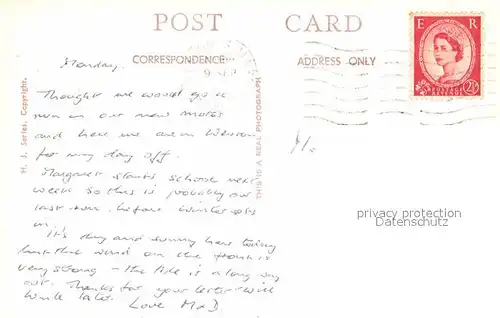 POST CARD
CORRESPONDENCE
ADDRESS ONLY
E R
2½D
POSTAGE REVENUE
H. J. Series, Copyright.
THIS IS A REAL PHOTOGRAPH
Monday.
Thought we would go a
run in our new motor
and here we are in Weston
for my day off.
Margaret starts school next
week so this is probably our
last run before winter sets
in.
It's dry and sunny here today
but the wind on the front is
very strong – the tide is a long way
out. Thanks for your letter will
write later. Love M & D.
privacy protection
Datenschutz